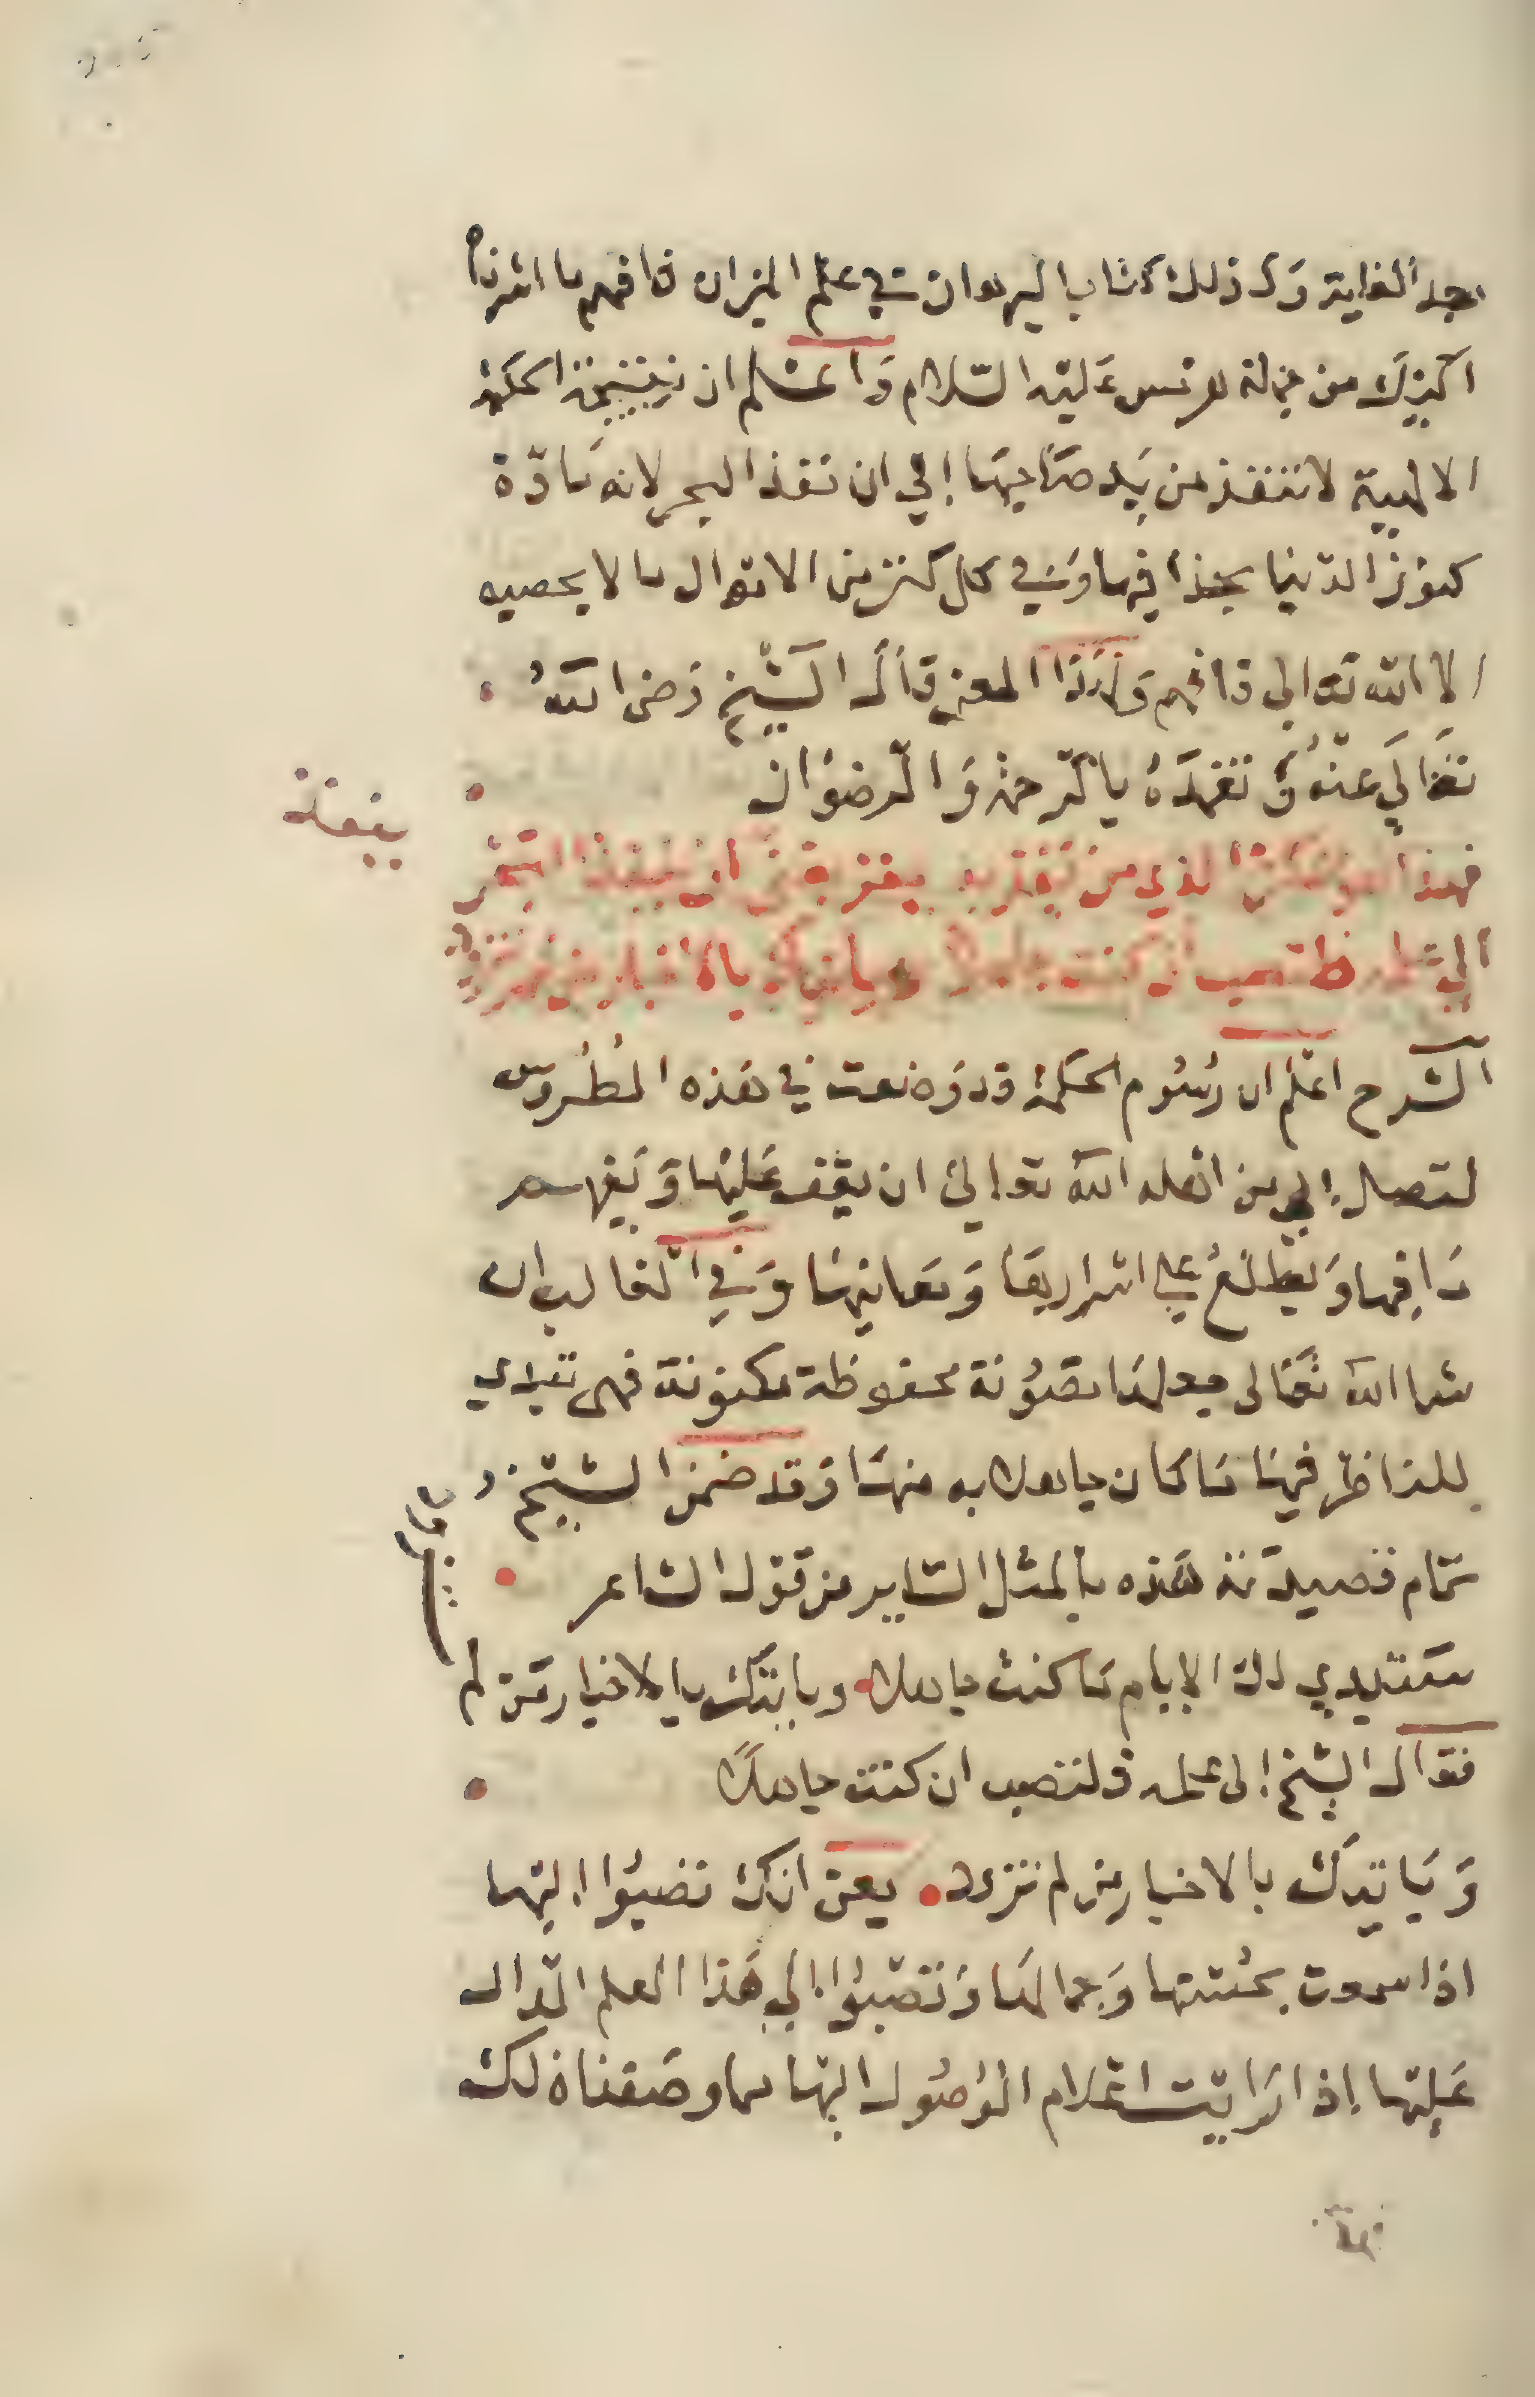 بجد الغاية وكذلك كتاب البرهان في علم الميزان فافهم ما اشرنا
اكبرك من جملة هرمس عليه السلام واعلم ان نتيجة الحكمة
الالهية لا تنفذ من يد صاحبها إلي ان نفذ البحر لانه مادة
كنوز الدنيا بحذافيرها وفي كل كنز من الاموال ما لا يحصيه
الا الله تعالي فافهم ولهذا المعني قال الشيخ رضي الله
تعالي عنه وتغمده بالرحمة والرضوان
فهذا هو الكنز الذي من يفز به يفز بغني ان ينفذ البحر
ينفذ
ان كنت جاهلا وياتيك بالاخبار من لم تزود
الشرح اعلم ان رسوم الحكمة قد وضعت في هذه الطروس
لتصل إلي من اهله الله تعالي ان يقف عليها ويفهم
ما فيها ويطلع علي اسرارها ومعانيها وفي الغالب ان
شا الله تعالى جعلها مصونة محفوظة مكنونة فهي تبدي
للناظر فيها ما كان جاهلا به منها وقد ضمن الشيخ
تمام قصيدته هذه بالمثل الساير من قول الشاعر
ستبدي لك الايام ما كنت جاهلا وياتيك بالاخبار من لم
تزود
فقال الشيخ إلى علمه فلتصب ان كنت جاهلا
وياتيك بالاخبار من لم تزود يعني انك تصبوا إليها
اذا سمعت بحسنها وجمالها وتصبوا إلي هذا العلم الدال
عليها إذا رايت اعلام الوصول اليها مما وصفناه لك